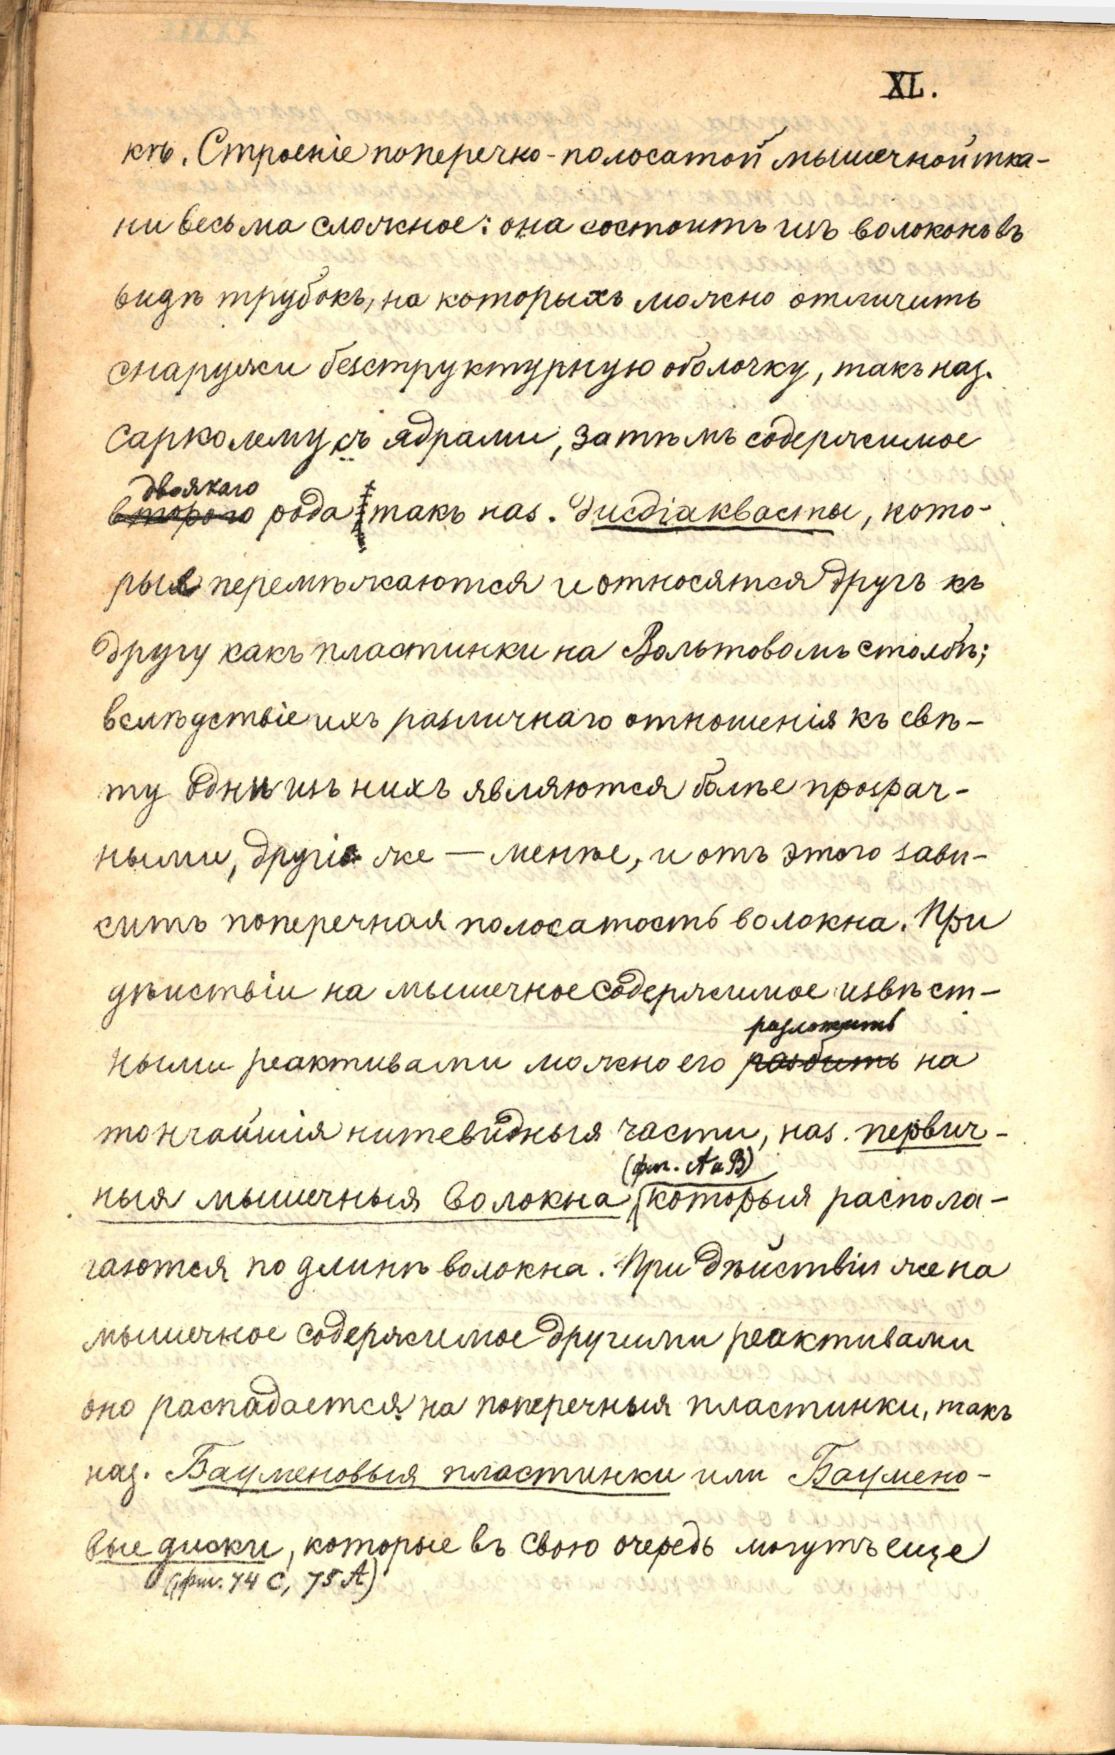 XL.
къ. Строеніе поперечно-полосатой мышечной тка-
ни весьма сложное: она состоитъ изъ волоконъ въ
видѣ трубокъ, на которыхъ можно отличить
снаружи безструктурную оболочку, такъ наз.
Сарколему съ ядрами, затѣмъ содержимое
двоякаго
второго рода такъ наз. дисдіакласты, кото-
рые перемѣжаются и относятся другъ къ
другу какъ пластинки на Вольтовомъ столбѣ;
вслѣдствіе ихъ различнаго отношенія къ свѣ-
ту одни изъ нихъ являются болѣе прозрач-
ными, другіе же — менѣе, и отъ этого зави-
ситъ поперечная полосатость волокна. При
дѣиствіи на мышечное содержимое извѣст-
разложить
ными реактивами можно его разбить на
тончайшія нитевидныя части, наз. первич-
(фиг. А и В)
ныя мышечныя волокна которыя распола-
гаются по длинѣ волокна. При дѣйствіи же на
мышечное содержимое другими реактивами
оно распадается на поперечныя пластинки, такъ
наз. Бауменовыя пластинки или Баумено-
вые диски, которые въ свою очередь могутъ еще
(фиг. 74 C, 75 A)